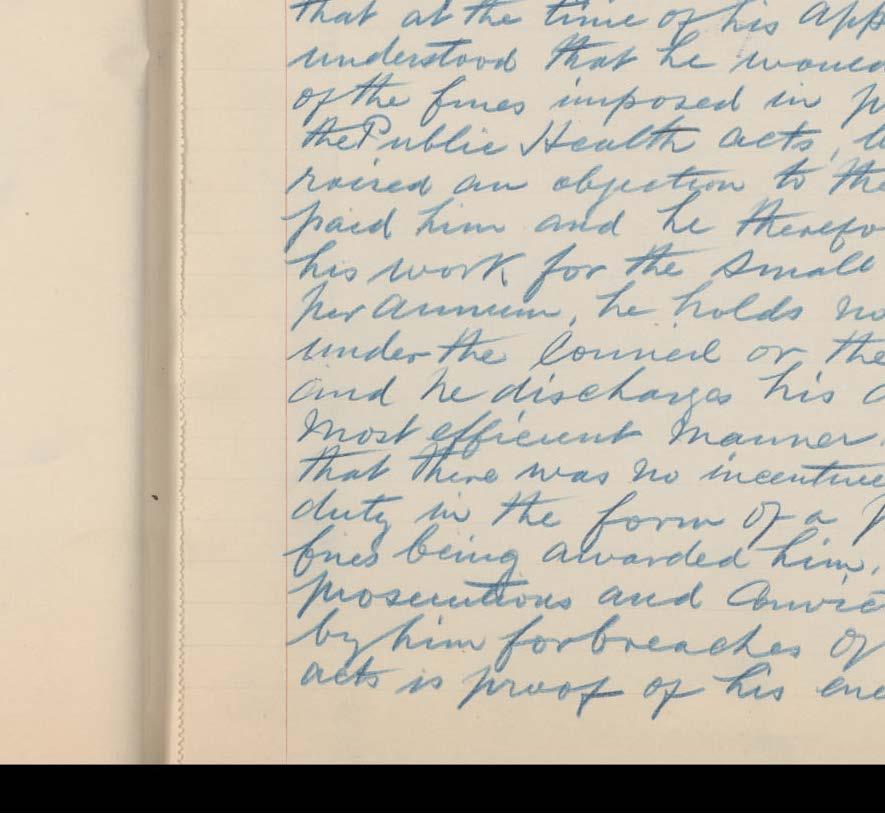 that at the time of his App
understood that he would
of the fines imposed in p
the Public Health acts, b
raised an objection to the
paid him and he therefo
his work for the small
per annum, he holds no
under the Council or the
and he discharges his d
most efficient manner.
that there was no incentive
duty in the form of a p
fines being awarded him,
prosecutions and Convic
by him for breaches of
acts is proof of his ene